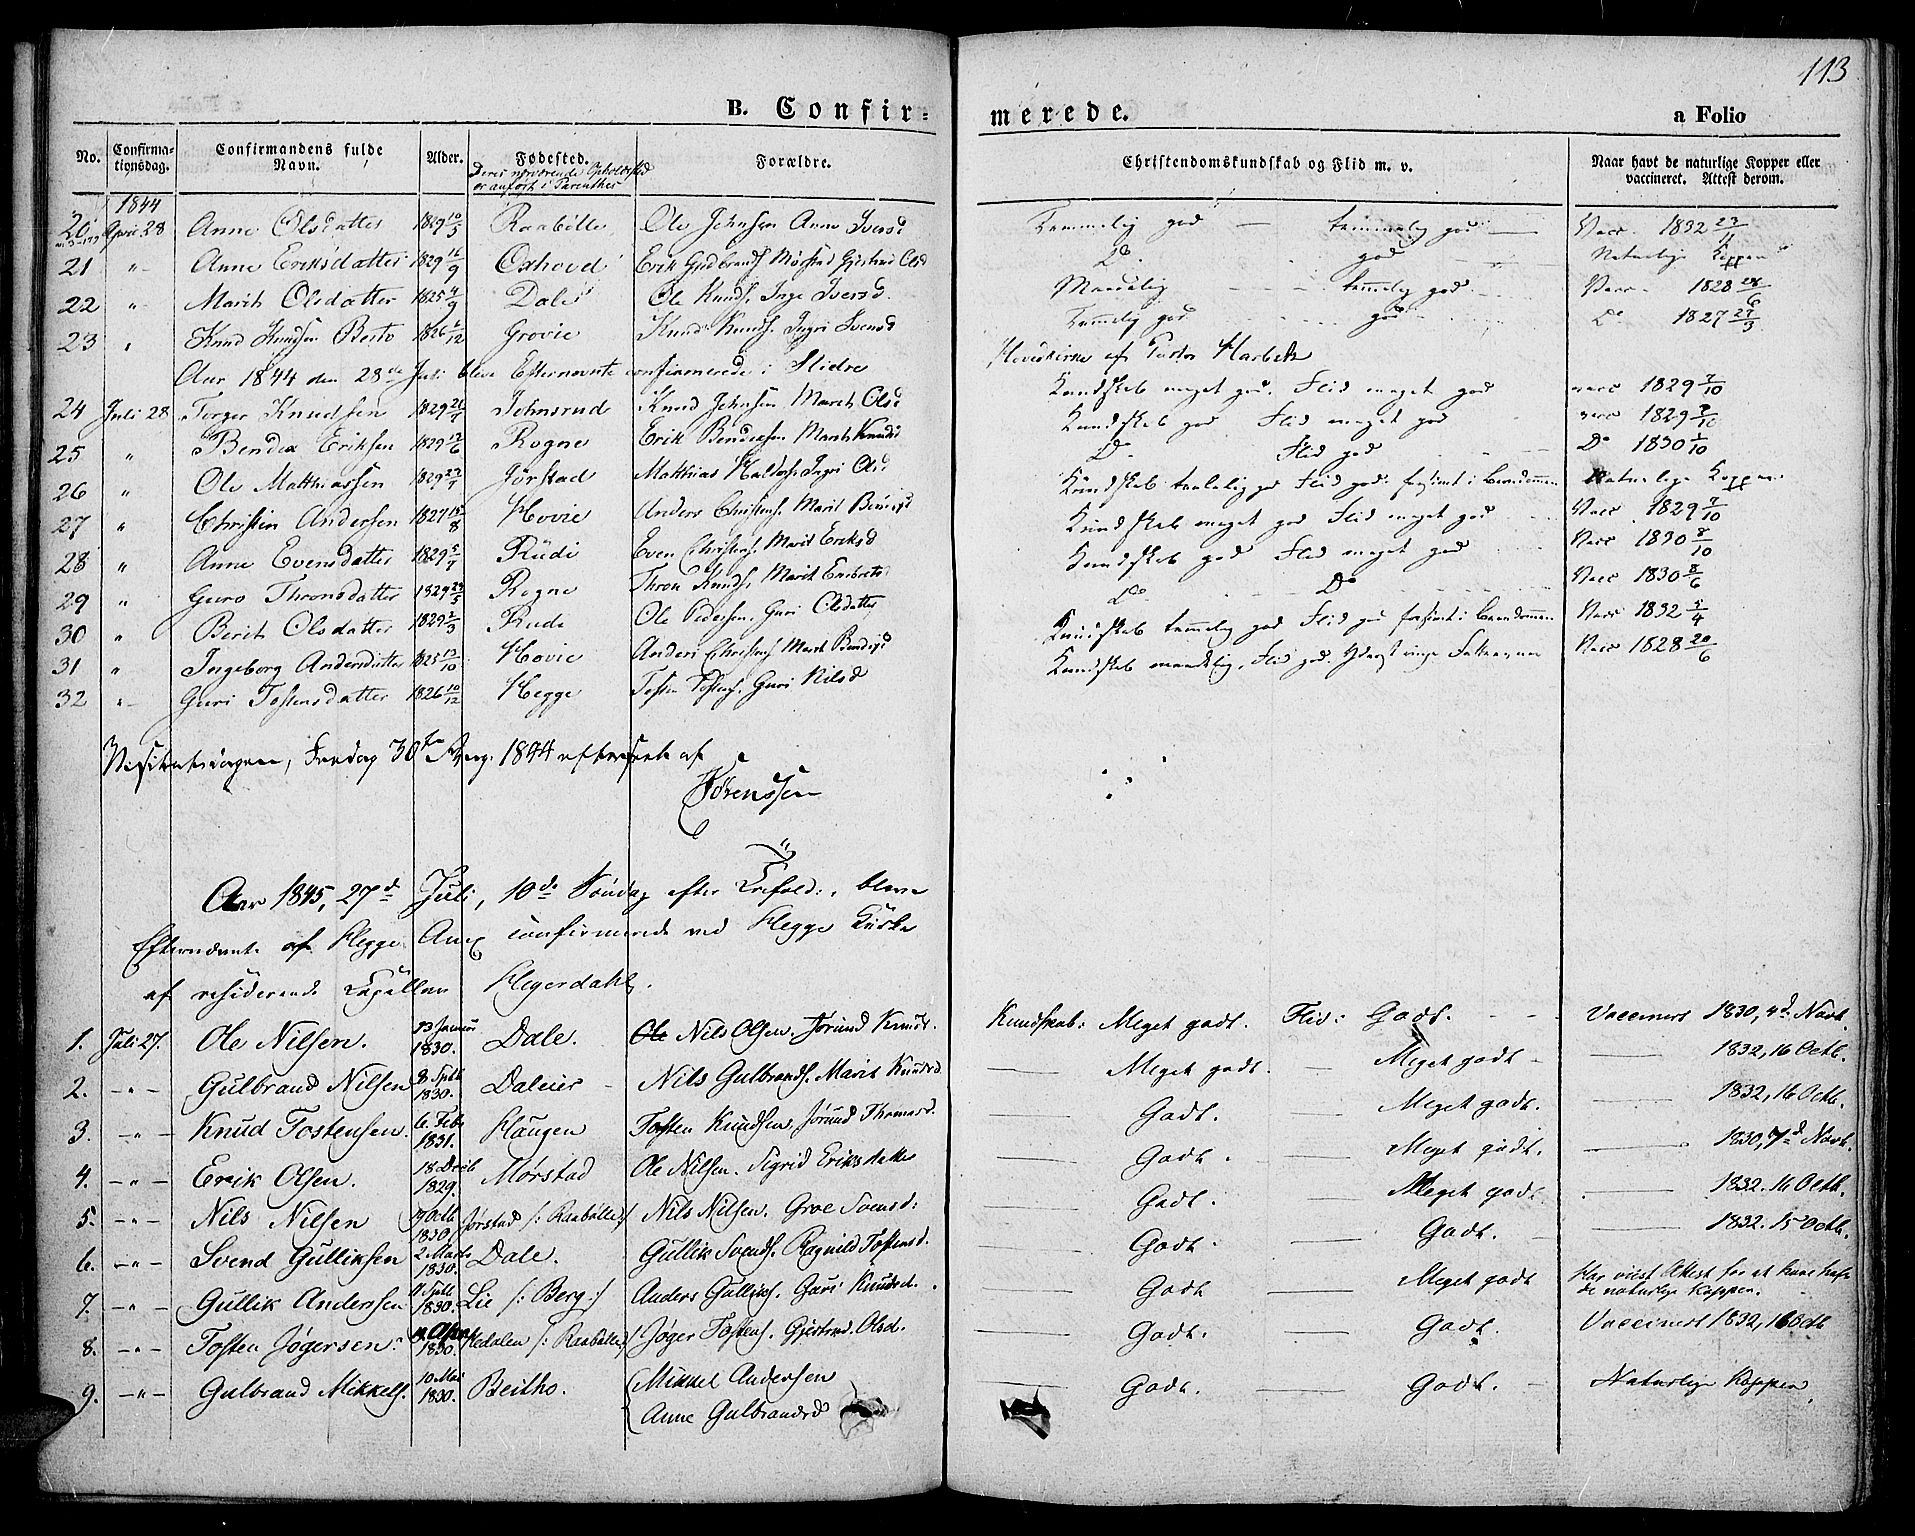 113
B. Confirmerede. a Folio
No. Confirmationsdag. Confirmandens fulde Navn. Alder. Fødested. Forældre. Christendomskundskab og Flid m. v. Naar havt de naturlige Kopper eller vaccineret. Attest derom.
Deres nærværende Opholdsted er anført i Parenthes
1844
20 April 28 Anne Olsdatter 1829 10/5 Raabølle Ole Johnsen Anne Iversd Temmelig god temmelig god Vacc. 1832 23/11
21 " Anne Eriksdatter 1829 16/9 Oxhovd Erik Gudbrands. Mørstad Gjertrud Olsd Do god Naturlige Kopper
22 " Marith Olsdatter 1825 4/9 Dale Ole Knuds. Inge Iversd. Maadelig temmelig god Vacc. 1828 28/6
23 " Knud Knudsen Berto 1826 1/12 Grovie Knud Knuds. Ingri Svensd Temmelig god god Do 1827 27/3
Aar 1844 den 28de Juli bleve Efternævnte confirmerede i Slidre Hovedkirke af Pastor Harbitz
24 Juli 28 Torger Knudsen 1829 21/7 Johnsrud Knud Johnsen Marith Olsd Kundskab meget god. Flid meget god vacc 1829 7/10
25 " Bendix Eriksen 1829 17/6 Rogne Erik Bendixsen Marit Knudsd Kundskab god Flid meget god vacc 1829 7/10
26 " Ole Matthiassen 1829 27/7 Jørstad Matthias Haldors. Ingri Olsd Do Flid god Do 1830 1/10
27 " Christen Andersen 1827 15/8 Hovie Anders Christens. Marit Bendixd Kundskab taalelig god Flid god. forsømt i Barndommen Naturlige Kopper
28 " Anne Evensdatter 1829 5/7 Rudi Even Christens. Marit Eriksd Kundskab meget god Flid meget god Vacc 1829 7/10
29 " Guro Thronsdatter 1829 29/5 Rogne Thron Knuds. Marit Embretsd Kundskab god Flid meget god Vacc 1830 8/10
30 " Berith Olsdatter 1829 2/3 Rudi Ole Pedersen. Guri Olsdatter Do Do Vacc 1830 8/6
31 " Ingeborg Andersdatter 1825 17/10 Hovie Anders Christens. Marit Bendixd Kundskab temmelig god Flid god forsømt i Barndommen Vacc 1832 5/4
32 " Guri Tostensdatter 1826 10/12 Hegge Tosten Tostens. Guri Nilsd Kundskab maadelig. Flid god. Yderst ringe Fatteevne Vacc 1828 20/6
Visitatsdagen, Fredag 30te Aug. 1844 efterseet af
Sørenssen
Aar 1845, 27d Juli, 10de Søndag efter Trefold:, bleve
Efternævnte af Hegge Anex confirmerede ved Hegge Kirke
af residerende Capellan Hegerdahl.
1. Juli 27. Ole Nilsen. 13 Januar 1830. Dale. Nils Olsen. Jørund Knuds. Kundskab: Meget godt. Flid: Godt. Vaccineret 1830, 4d. Novb.
2. " Gulbrand Nilsen 8. Sptb 1830. Daleier Nils Gulbrands. Marit Knudsd Meget godt. Meget godt 1832, 16 Octb.
3. " Knud Tostensen. 6. Feb. 1831. Haugen Tosten Knudsen Jørund Thomasd. Godt. Meget godt. 1832, 16 Octb.
4. " Erik Olsen. 18 Decb 1829. Mørstad Ole Nilsen. Sigrid Eriksdatter Godt. Meget godt. 1830, 7d Novb.
5. " Nils Nilsen 9 Octb. 1830. Jørstad /: Raabølle :/ Nils Nilsen. Groe Svensd: Godt. Meget godt 1832. 16 Octb.
6. " Svend Gulliksen 2 Marts 1830. Dale. Gullik Svends. Ragnild Tostensd. Godt. Godt. 1832. 15 Octb.
7. " Gullik Andersen 11 Sptb 1830. Lie /: Berg :/ Anders Gulliks. Guri Knudsd. Godt Meget godt Har viist Attest for at have havt de naturlige Kopper.
8. " Tosten Jøgersen 1830. Hedalen /: Raabølle :/ Jøger Tostens. Gjertrud. Olsd. Godt. Godt. Vaccineret 1832, 16 Octb
9. " Gulbrand Mikkels. 10 Mai 1830. Beitho. Mikkel Andersen Godt. Godt. Naturlige Kopper
Anne Gulbrandsd